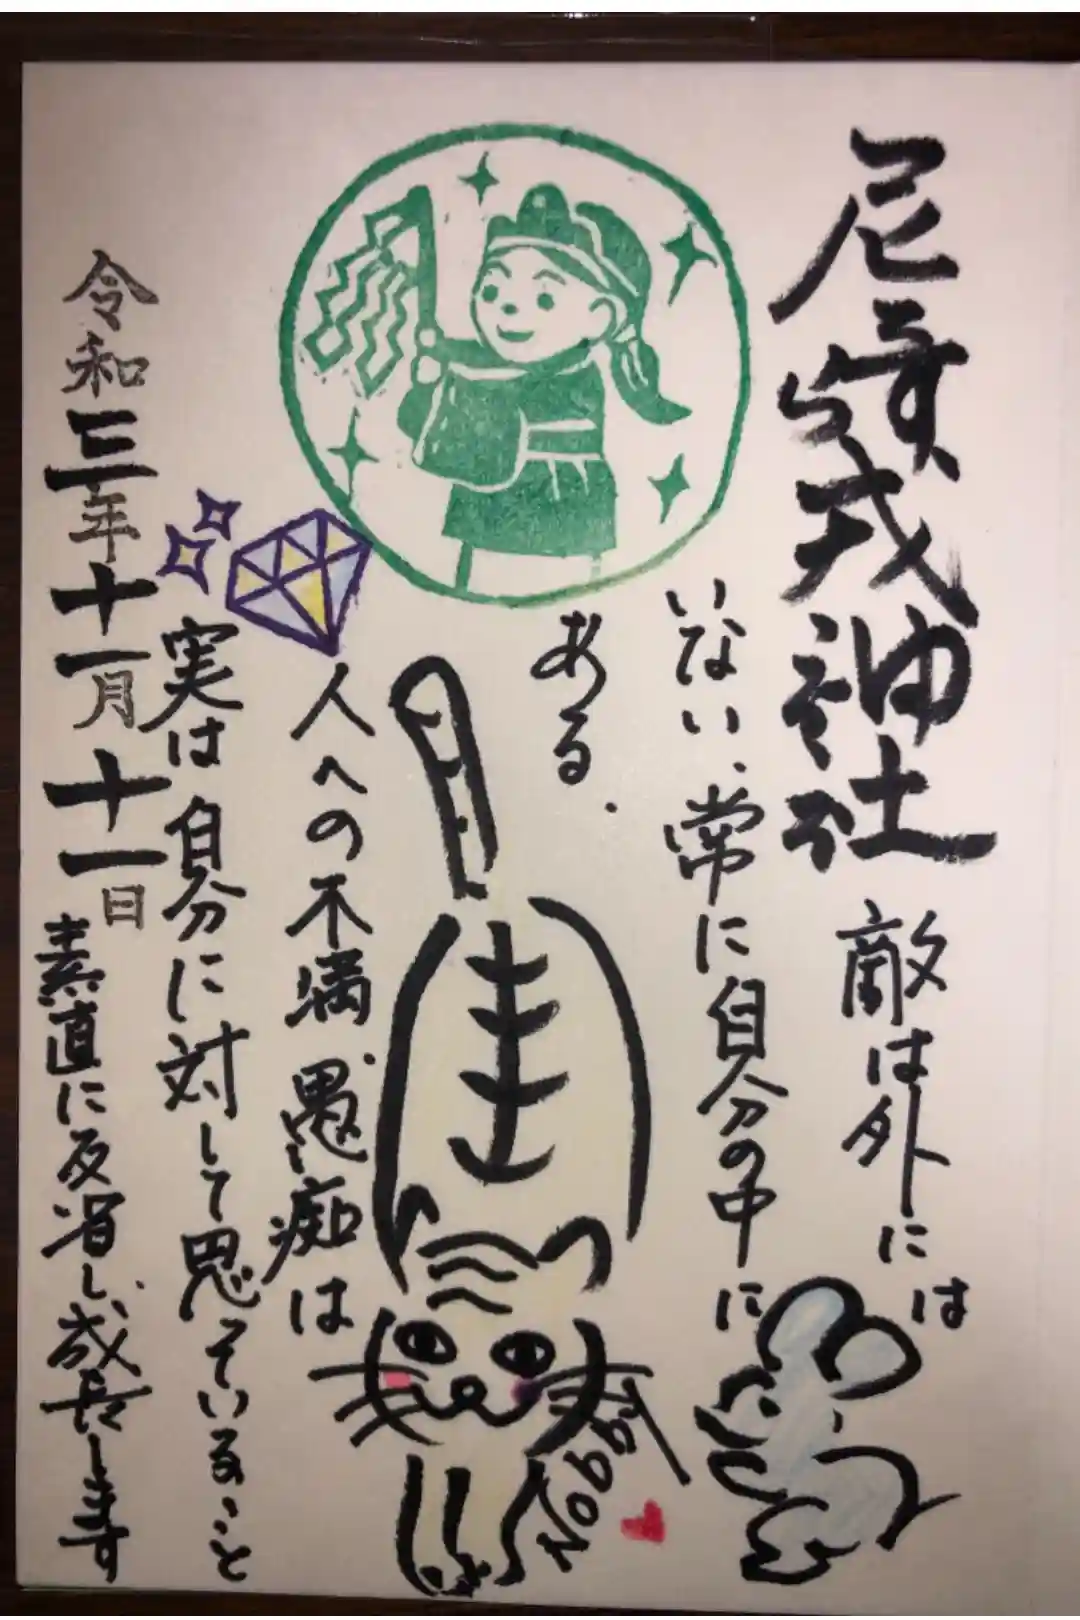 尼崎戎神社
敵は外には
いない、常に自分の中に
ある.
人への不満、愚痴は
実は自分に対して思っていること
令和三年十一月十一日
素直に反省し、成長します
Nobby